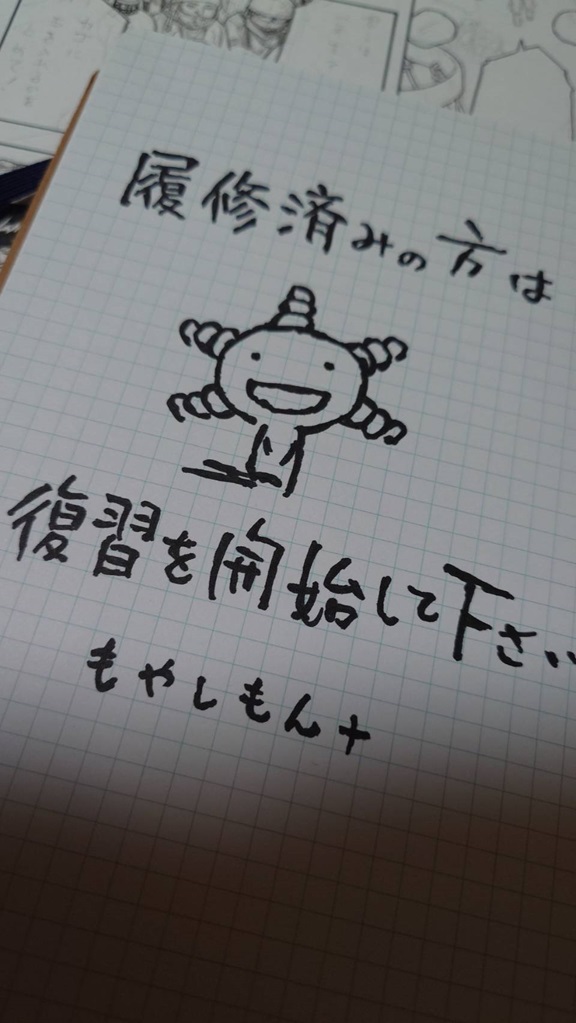 履修済みの方は
復習を開始して下さい
もやしもん+